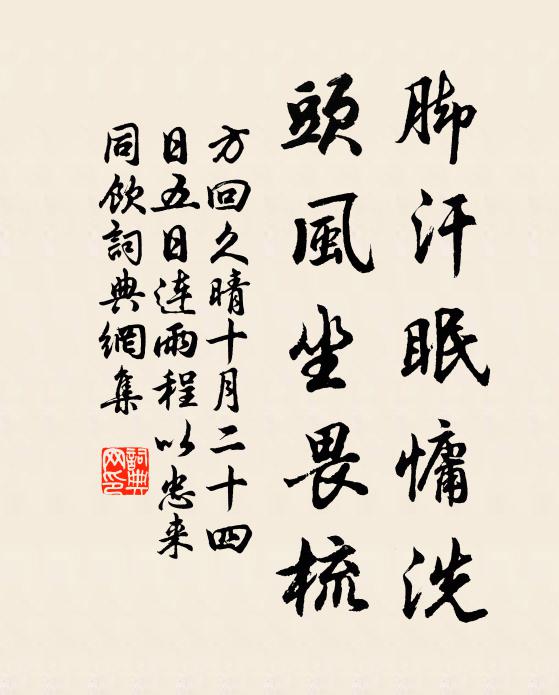 脚汗眠慵洗
頭風坐畏梳
方回久晴十月二十四
日五日連雨程以忠来
同飲詞典網集
詞典網印